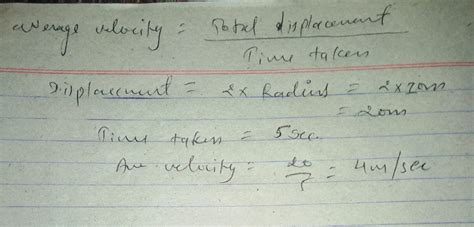 average velocity = Total displacement
Time taken
Displacement = 2 x Radius = 2 x 10m
= 20m
Time taken = 5 sec
Ave. velocity = 20/5 = 4m/sec